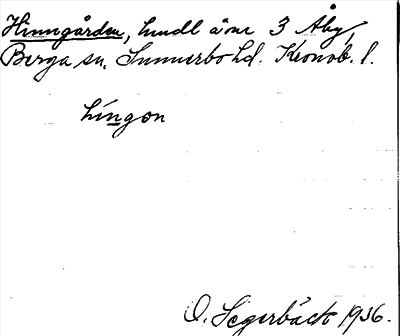 Hinngården, hmdl å äne 3 Åby,
Berga sn. Sunnerbo hd. Kronob. l.
língon
O. Segerbäck 1936.